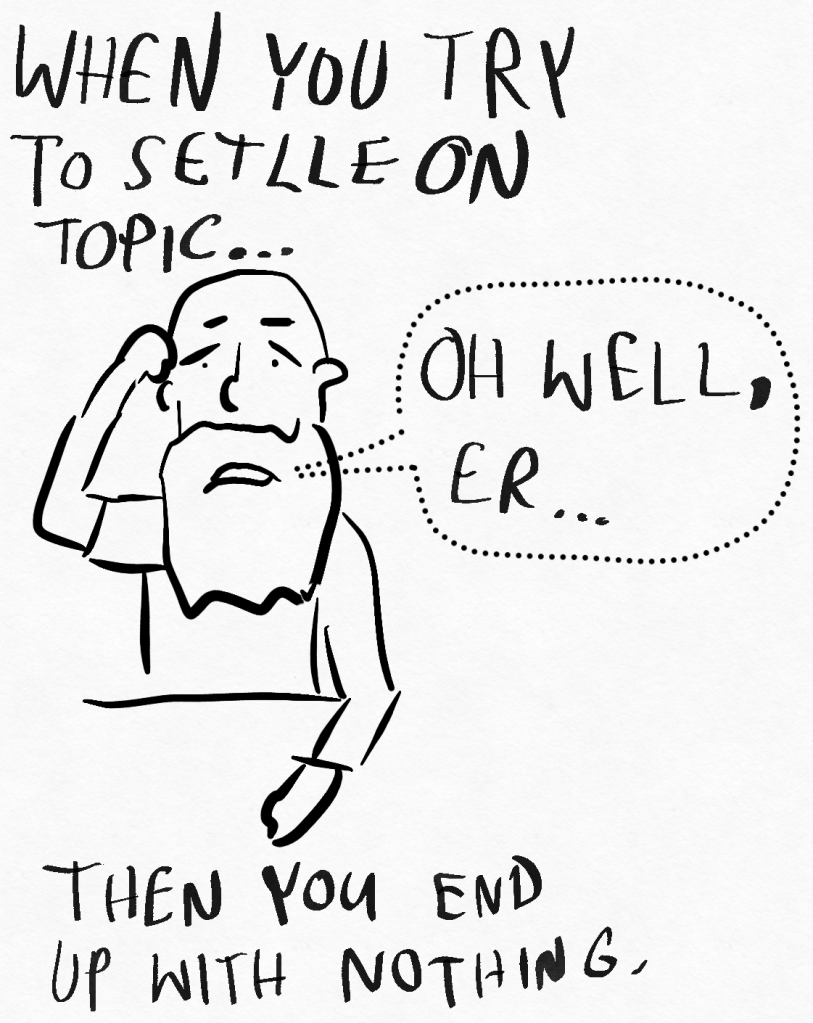 WHEN YOU TRY
TO SETLLE ON
TOPIC...
OH WELL,
ER...
THEN YOU END
UP WITH NOTHING.